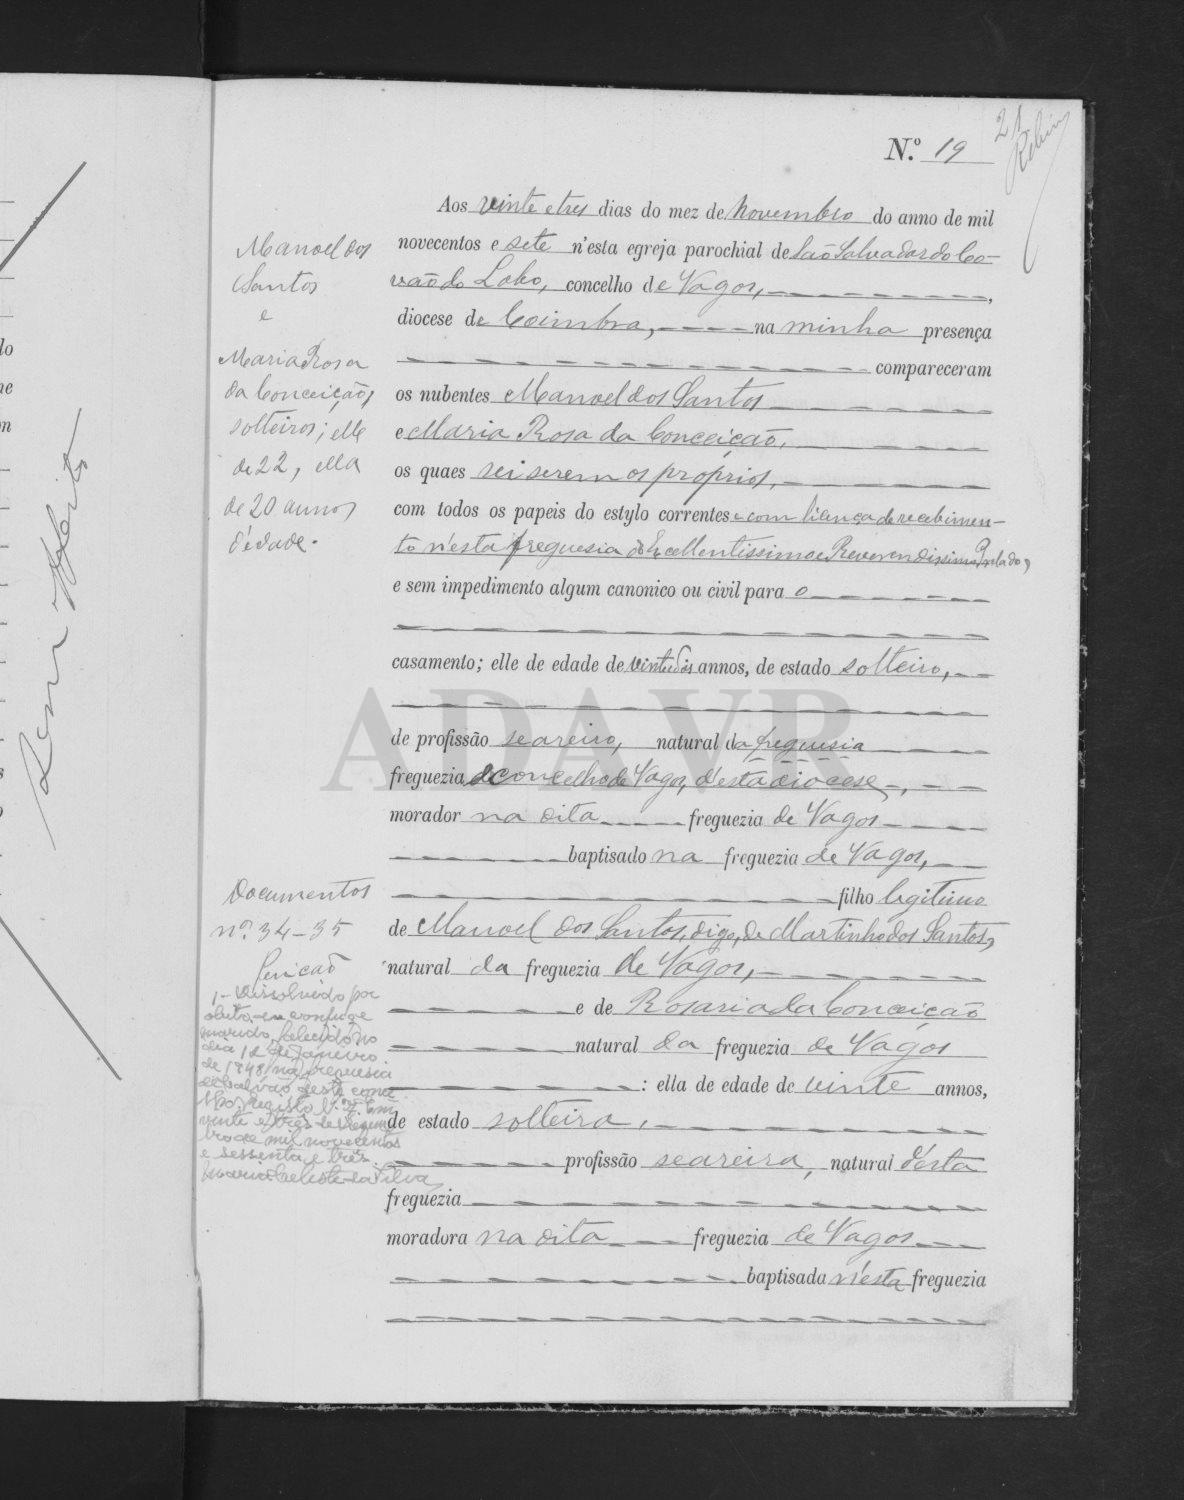 N.º 19
21
Aos vinte e tres dias do mez de Novembro do anno de mil
novecentos e sete n'esta egreja parochial de São Salvador do Co-
vão do Lobo, concelho de Vagos,
diocese de Coimbra, na minha presença
compareceram
os nubentes Manoel dos Santos
e Maria Rosa da Conceição,
os quaes sei serem os proprios,
com todos os papeis do estylo correntes e com licença de recebimen-
to n'esta freguesia do Excellentissimo e Reverendissimo Prelado,
e sem impedimento algum canonico ou civil para o
casamento; elle de edade de vinte e dois annos, de estado solteiro,
de profissão seareiro, natural da freguesia
freguezia e concelho de Vagos, d'esta diocese,
morador na dita freguezia de Vagos
baptisado na freguezia de Vagos,
filho legitimo
de Manoel dos Santos, digo, de Martinho dos Santos,
natural da freguezia de Vagos,
e de Rosaria da Conceição
natural da freguezia de Vagos
: ella de edade de vinte annos,
de estado solteira,
profissão seareira, natural d'esta
freguezia
moradora na dita freguezia de Vagos
baptisada n'esta freguezia
Manoel dos
Santos
e
Maria Rosa
da Conceição,
solteiros; elle
de 22, ella
de 20 annos
d'edade.
Documentos
nº. 34-35
1- Dissolvido por
obito
marido, falecido no
dia 12 de Janeiro
de 1948 na freguesia
deste conce-
lho, registo Em
vinte e três de
bro de mil novecentos
e sessenta e três.
Maria Celeste da Silva
ADAVR